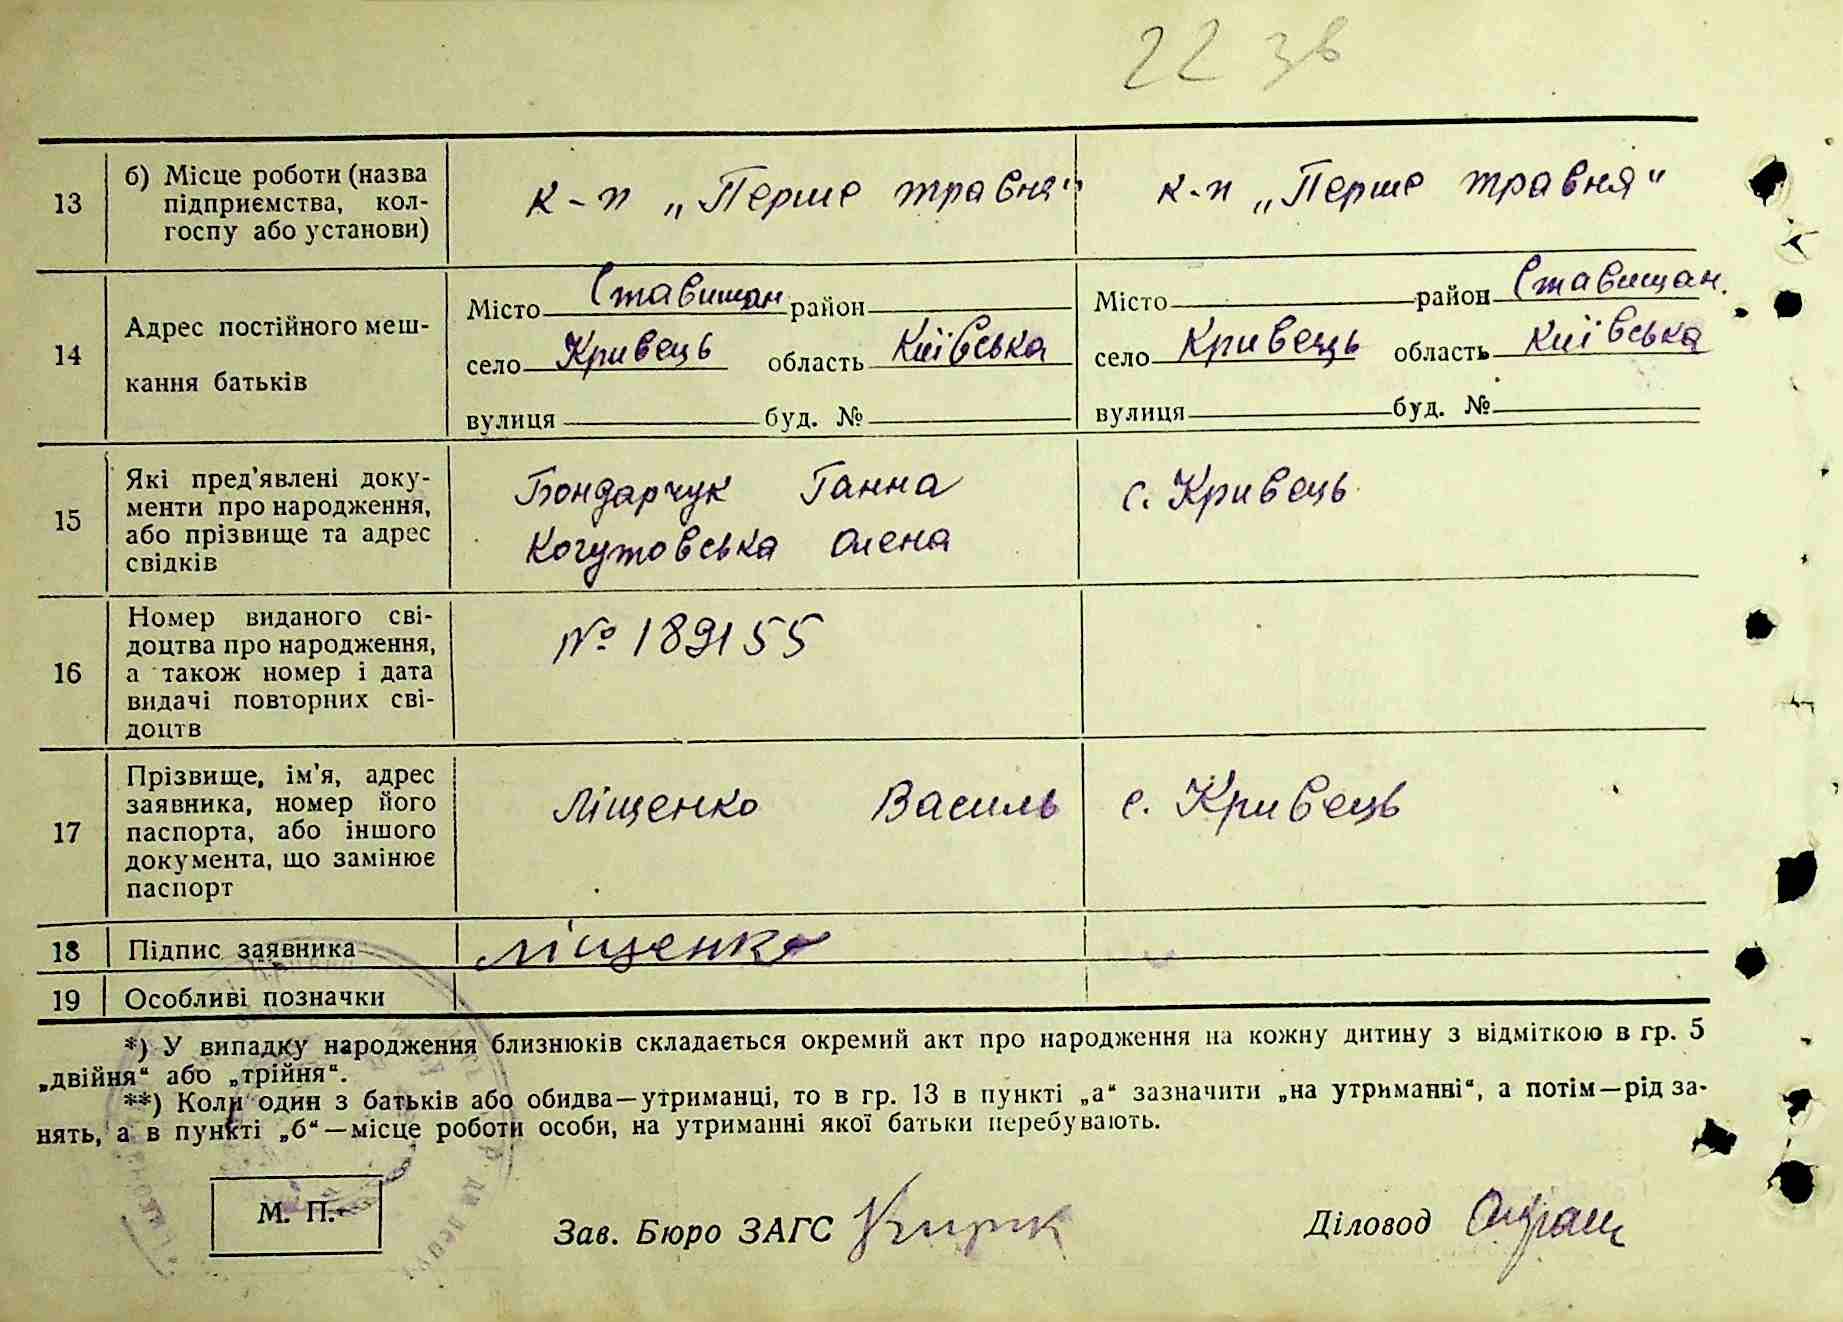 22 зв
13
б) Місце роботи (назва
підприємства, кол-
госпу або установи)
к-п „Перше травня"
к-п „Перше травня"
14
Адрес постійного меш-
кання батьків
Місто Ставищан район
село Кривець область Київська
вулиця буд. №
Місто район Ставищан.
село Кривець область Київська
вулиця буд. №
15
Які пред'явлені доку-
менти про народження,
або прізвище та адрес
свідків
Бондарчук Ганна
Когутовська Олена
с. Кривець
16
Номер виданого сві-
доцтва про народження,
а також номер і дата
видачі повторних сві-
доцтв
№ 189155
17
Прізвище, ім'я, адрес
заявника, номер його
паспорта, або іншого
документа, що замінює
паспорт
Ліщенко Василь
с. Кривець
18
Підпис заявника
Ліщенко
19
Особливі позначки
*) У випадку народження близнюків складається окремий акт про народження на кожну дитину з відміткою в гр. 5
„двійня“ або „трійня“.
**) Коли один з батьків або обидва—утриманці, то в гр. 13 в пункті „а“ зазначити „на утриманні“, а потім—рід за-
нять, а в пункті „б“—місце роботи особи, на утриманні якої батьки перебувають.
М. П.
Зав. Бюро ЗАГС
Діловод